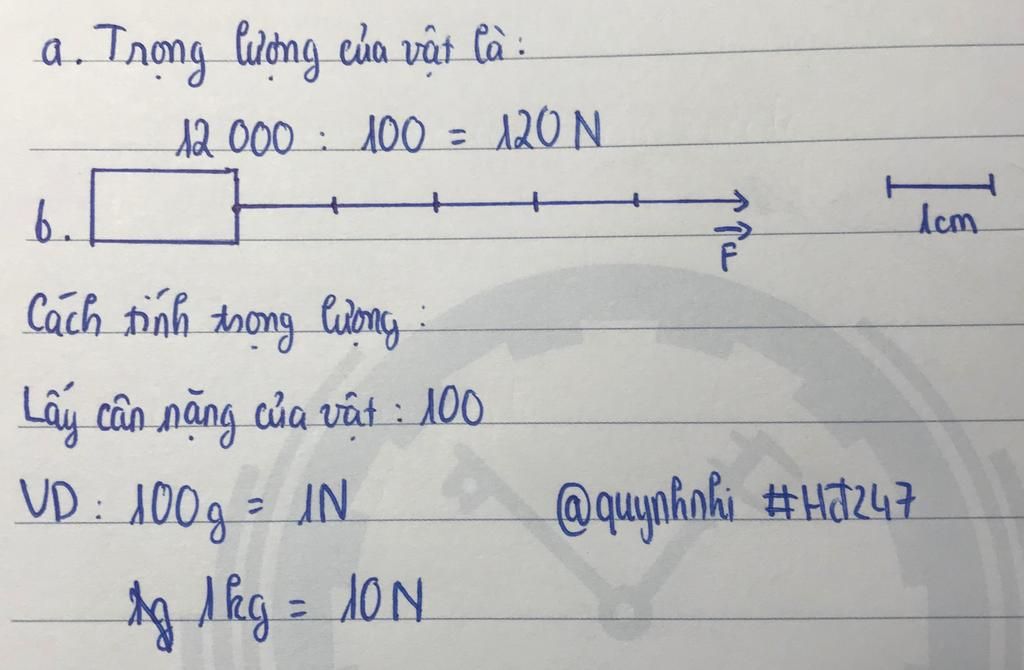 a. Trọng lượng của vật là:
12 000 : 100 = 120 N
b.
1cm
F
Cách tính trọng lượng:
Lấy cân nặng của vật : 100
VD: 100g = 1N
@quynhnhi #Hđ247
1kg = 10N